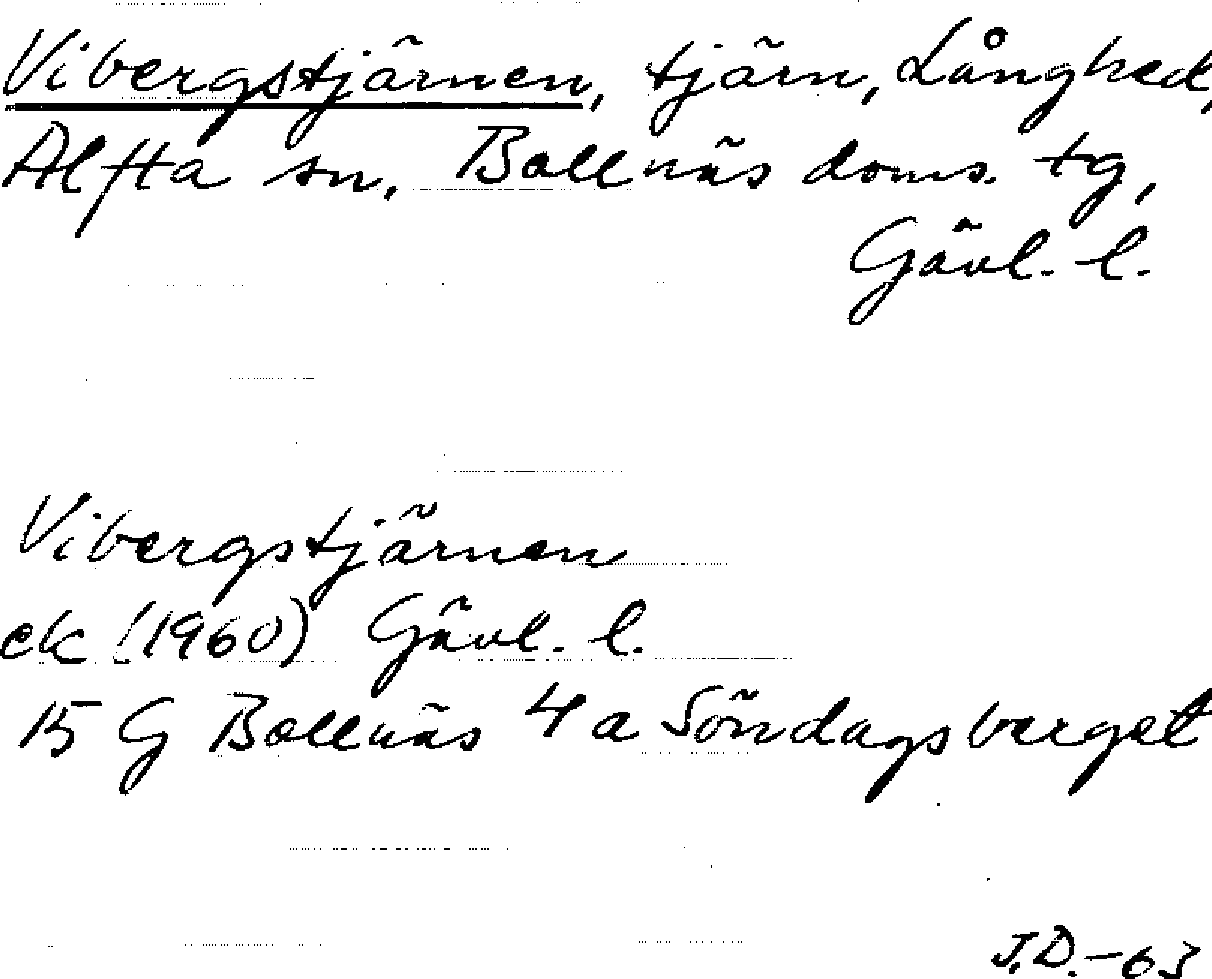 Vibergstjärnen, tjärn, Långhed,
Alfta sn, Bollnäs doms. tg,
Gävl. l.
Vibergstjärnen
ek (1960) Gävl. l.
15 G Bollnäs 4 a Söndagsberget
J.D.-63